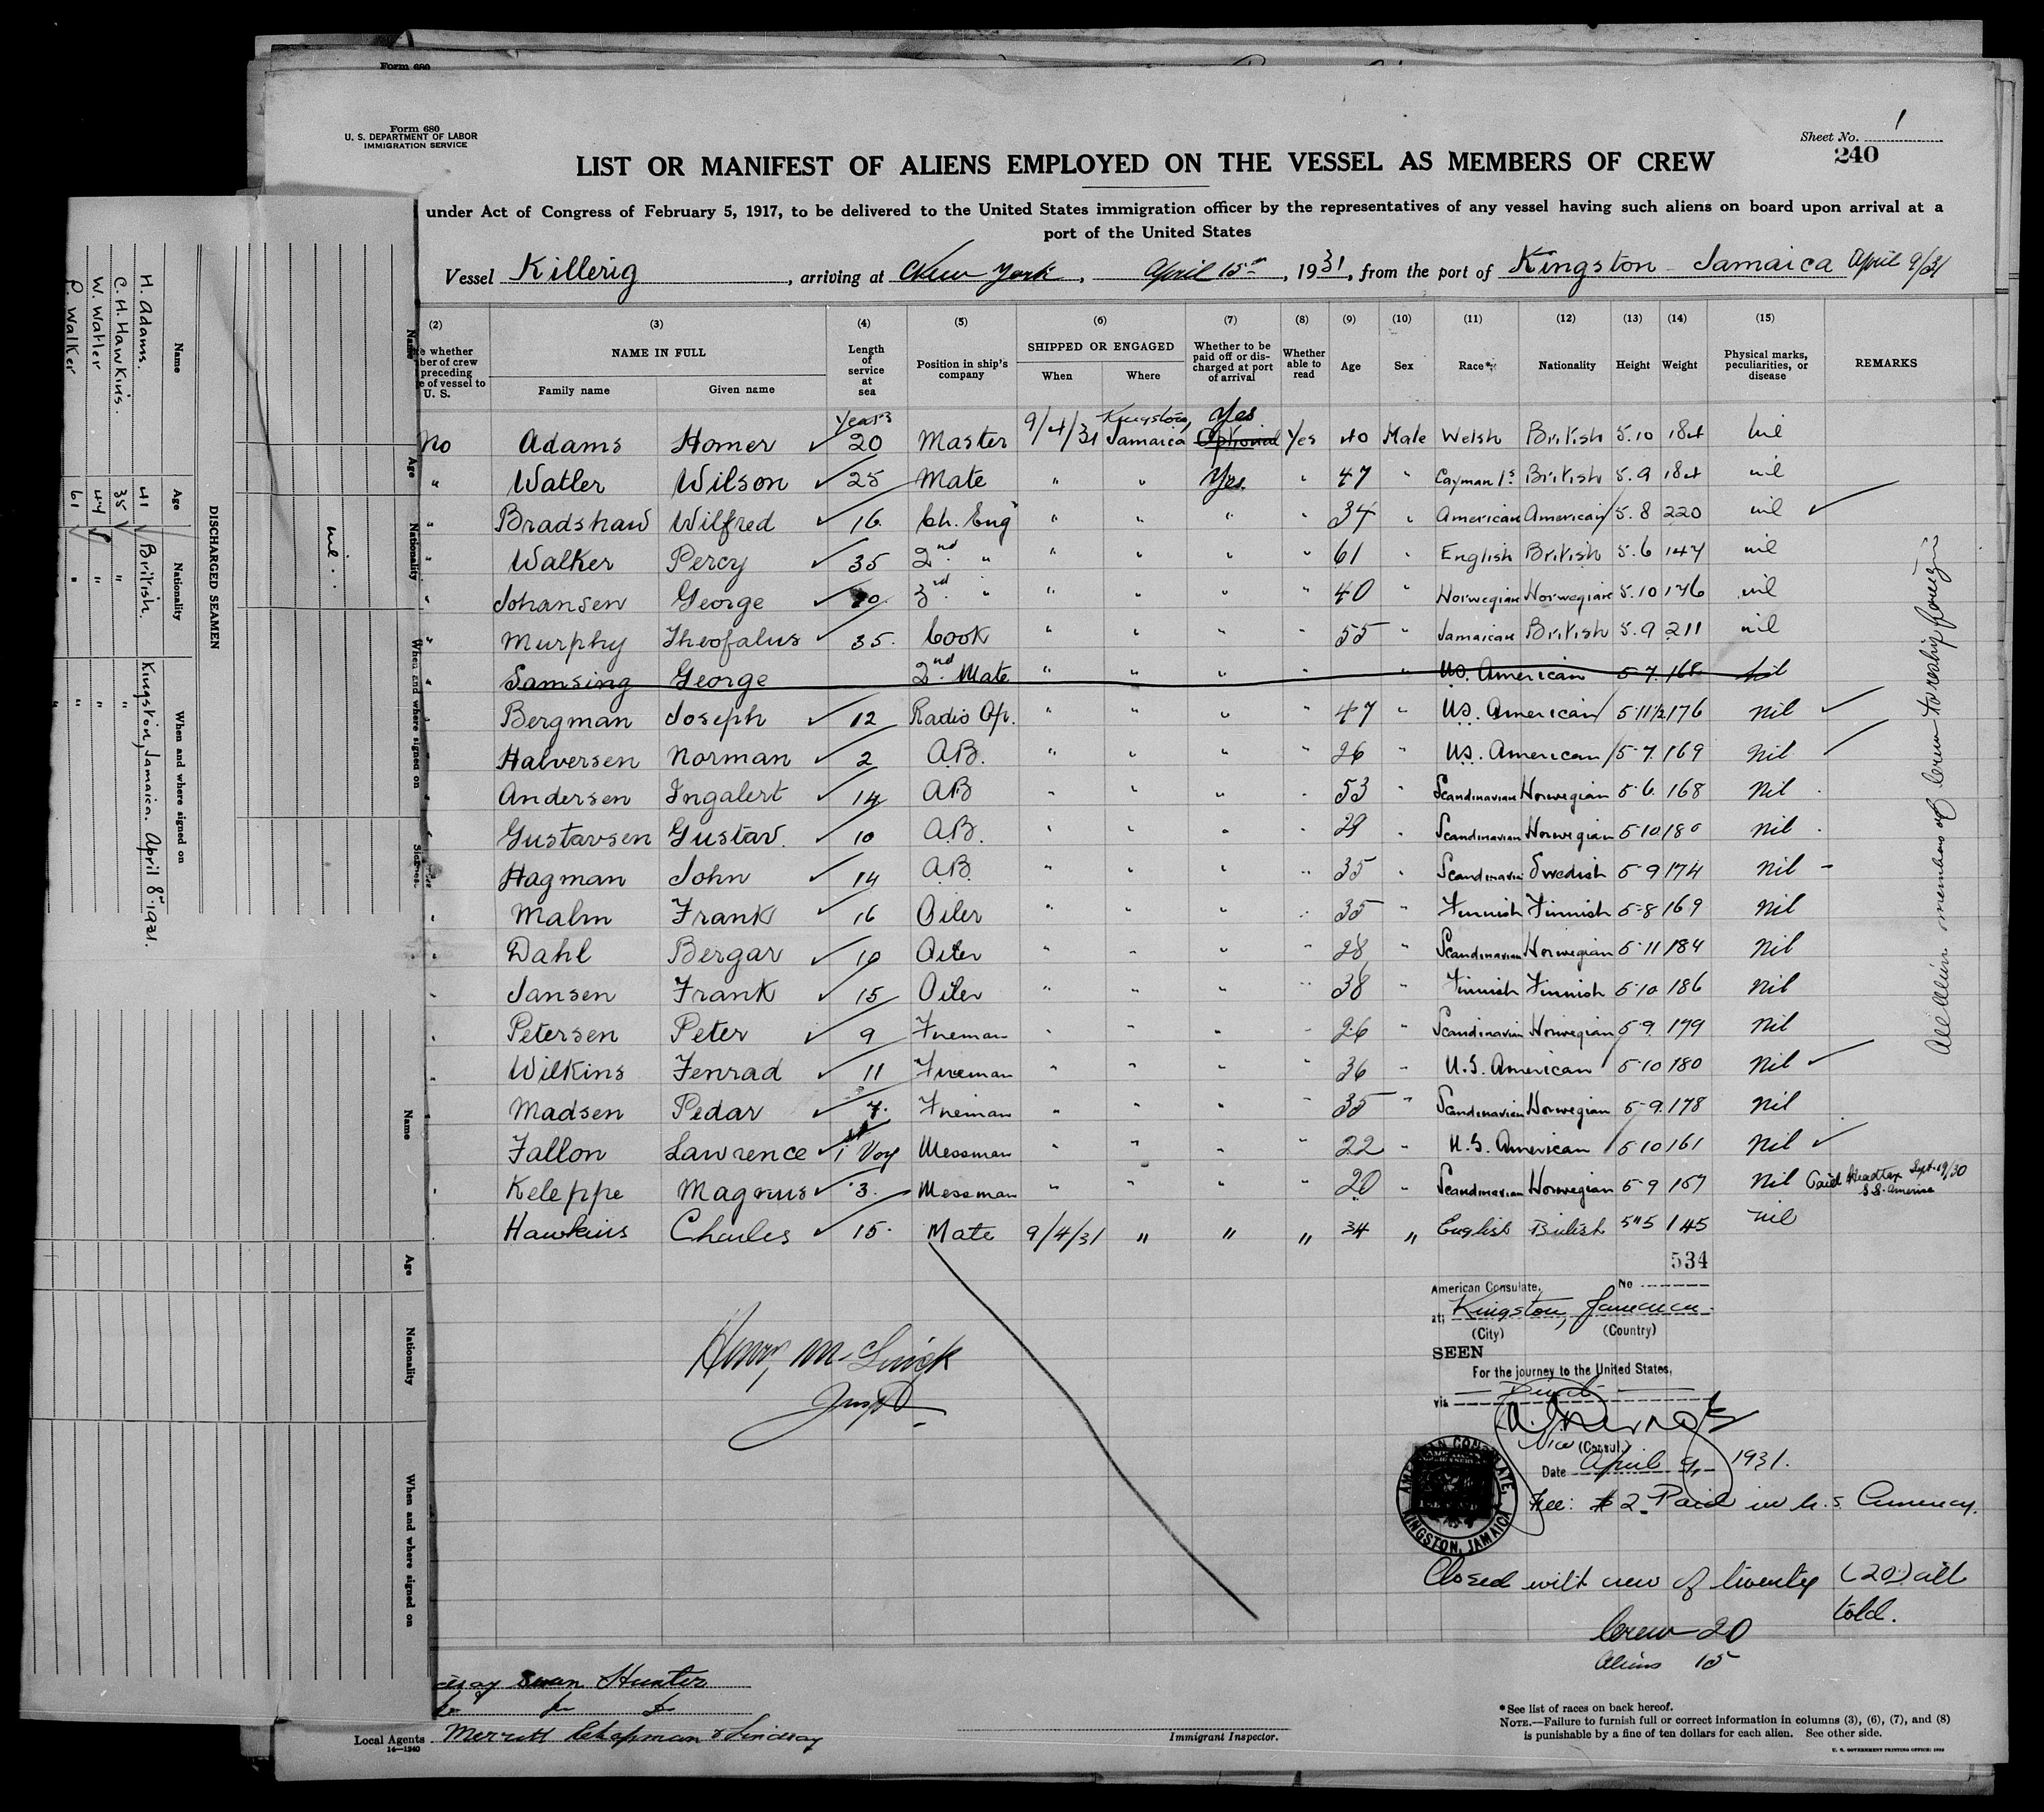 Form 680
Form 680
U. S. DEPARTMENT OF LABOR
IMMIGRATION SERVICE
Sheet No. 1
240
LIST OR MANIFEST OF ALIENS EMPLOYED ON THE VESSEL AS MEMBERS OF CREW
under Act of Congress of February 5, 1917, to be delivered to the United States immigration officer by the representatives of any vessel having such aliens on board upon arrival at a
port of the United States
Vessel Killerig, arriving at New York, April 15th, 1931, from the port of Kingston - Jamaica April 9/31
(2) (3) (4) (5) (6) (7) (8) (9) (10) (11) (12) (13) (14) (15)
whether
ber of crew
preceding
e of vessel to
U. S.
NAME IN FULL
Family name Given name
Length of service at sea
Position in ship's company
SHIPPED OR ENGAGED
When Where
Whether to be paid off or discharged at port of arrival
Whether able to read
Age Sex Race* Nationality Height Weight
Physical marks, peculiarities, or disease
REMARKS
years Kingston, Yes
No Adams Homer ✓ 20 Master 9/4/31 Jamaica Optional Yes 40 Male Welsh British 5.10 184 nil
" Watler Wilson ✓ 25 Mate " " Yes " 47 " Cayman Is British 5.9 184 nil
" Bradshaw Wilfred ✓ 16 Ch. Eng " " " " 34 " American American 5.8 220 nil ✓
" Walker Percy ✓ 35 2nd " " " " " 61 " English British 5.6 147 nil
" Johansen George ✓ 20 3rd " " " " " 40 " Norwegian Norwegian 5.10 176 nil
" Murphy Theofalus ✓ 35. Cook " " " " 55 " Jamaican British 5.9 211 nil
" Samsing George 2nd Mate " " " " " U.S. American 5-7. 168 Nil
" Bergman Joseph ✓ 12 Radio Op. " " " " 47 " U.S. American 5-11½ 176 Nil ✓
" Halversen Norman ✓ 2 A.B. " " " " 26 " U.S. American 5-7. 169 Nil ✓
" Andersen Ingalert ✓ 14 AB " " " " 53 " Scandinavian Norwegian 5-6. 168 Nil
" Gustavsen Gustav. ✓ 10 A.B. " " " " 29 " Scandinavian Norwegian 5-10 180 Nil
" Hagman John ✓ 14 A.B. " " " " 35 " Scandinavian Swedish 5-9 174 Nil -
" Malm Frank ✓ 16 Oiler " " " " 35 " Finnish Finnish 5-8 169 Nil
" Dahl Bergar ✓ 10 Oiler " " " " 28 " Scandinavian Norwegian 5-11 184 Nil
" Jansen Frank ✓ 15 Oiler " " " " 38 " Finnish Finnish 5-10 186 Nil
" Petersen Peter ✓ 9 Fireman " " " " 26 " Scandinavian Norwegian 5-9. 179 Nil
" Wilkins Fenrad ✓ 11 Fireman " " " " 36 " U.S. American 5-10 180 Nil ✓
" Madsen Pedar ✓ 7. Fireman " " " " 35 " Scandinavian Norwegian 5-9. 178 Nil
" Fallon Lawrence ✓ 1 Voy Messman " " " " 22 " U.S. American 5-10 161 Nil ✓
" Keleppe Magnus ✓ 3. Messman " " " " 20 " Scandinavian Norwegian 5-9 157 Nil Paid Headtax Sept. 19/30
S.S. America
Hawkins Charles ✓ 15. Mate 9/4/31 " " " 34 " English British 5"5 145 nil
All Alien members of Crew to reship foreign
534
American Consulate, No
at: Kingston, Jamaica.
(City) (Country)
SEEN
For the journey to the United States,
via Direct
Vice (Consul.)
Date April 9, 1931.
Fee: $2. Paid in U.S. Currency.
AMERICAN CONSULATE,
KINGSTON, JAMAICA
Closed with crew of twenty (20) all
told.
Crew - 20
Aliens 15
Swan Hunter
do do do
Local Agents Merritt Chapman & Lindsay
14—1240
Immigrant Inspector.
*See list of races on back hereof.
NOTE.—Failure to furnish full or correct information in columns (3), (6), (7), and (8)
is punishable by a fine of ten dollars for each alien. See other side.
U. S. GOVERNMENT PRINTING OFFICE
DISCHARGED SEAMEN
Name Age Nationality When and where signed on
H. Adams. 41 British. Kingston, Jamaica. April 8th 1931.
C. H. Hawkins. 35 " "
W. Watler 44 " "
P. Walker 61 " "
Name Age Nationality When and where signed on
nil
Name Age Nationality When and where signed on